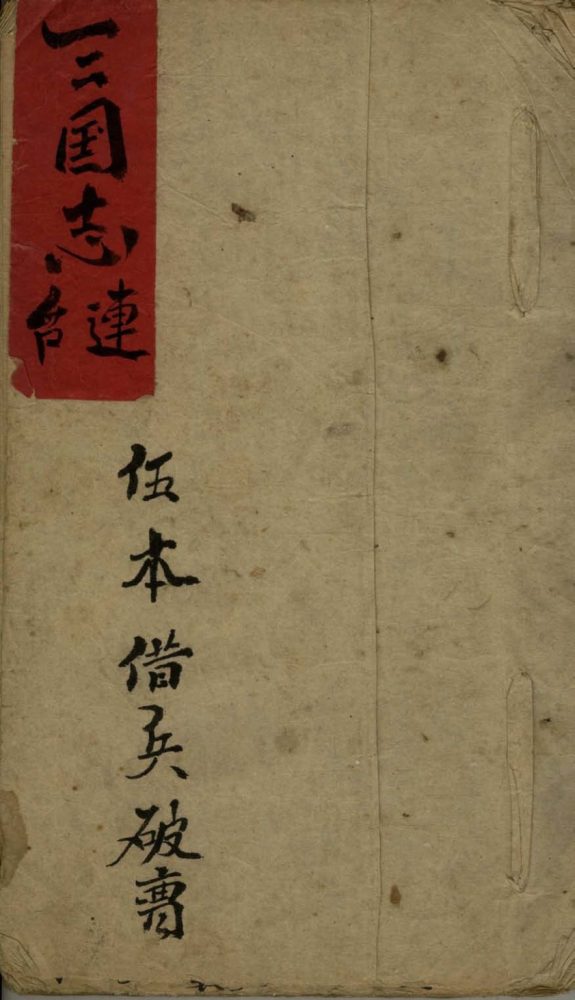 三国志
連台
伍本借兵破曹